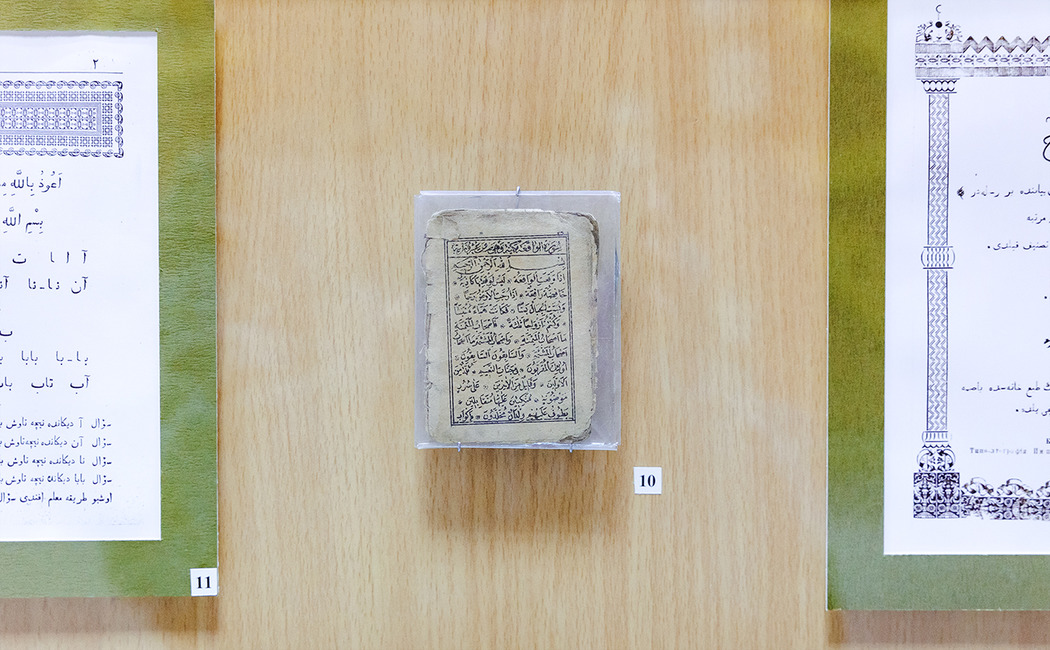 ٢
اَعُوذُ بِاللّٰهِ
بِسْمِ اللّٰهِ
آ ا ا ت
آن نا-نا
با-با بابا
آب تاب
سؤال آ ديكانده نيچه تاوش
سؤال آن ديكانده نيچه تاوش
سؤال نا ديكانده نيچه تاوش
سؤال بابا ديكانده نيچه تاوش
اوشبو طريقه معلم افندى سؤال
11
سورة الواقعة مكية وهي
بسم الله الرحمن الرحيم
اذا وقعت الواقعة * ليس لوقعتها كاذبة *
خافضة رافعة * اذا رجت الارض رجا *
وبست الجبال بسا * فكانت هباء منبثا *
وكنتم ازواجا ثلثة * فاصحاب الميمنة
ما اصحاب الميمنة * واصحاب المشئمة ما
اصحاب المشئمة * والسابقون السابقون *
اولئك المقربون * في جنات النعيم * ثلة من
الاولين * وقليل من الاخرين * على سرر
موضونة * متكئين عليها متقابلين *
يطوف عليهم ولدان مخلدون * باكواب
10
بياننده بر رساله در
مرتبه
تصنيف قيلندى .
طبع خانه سنده باصيه